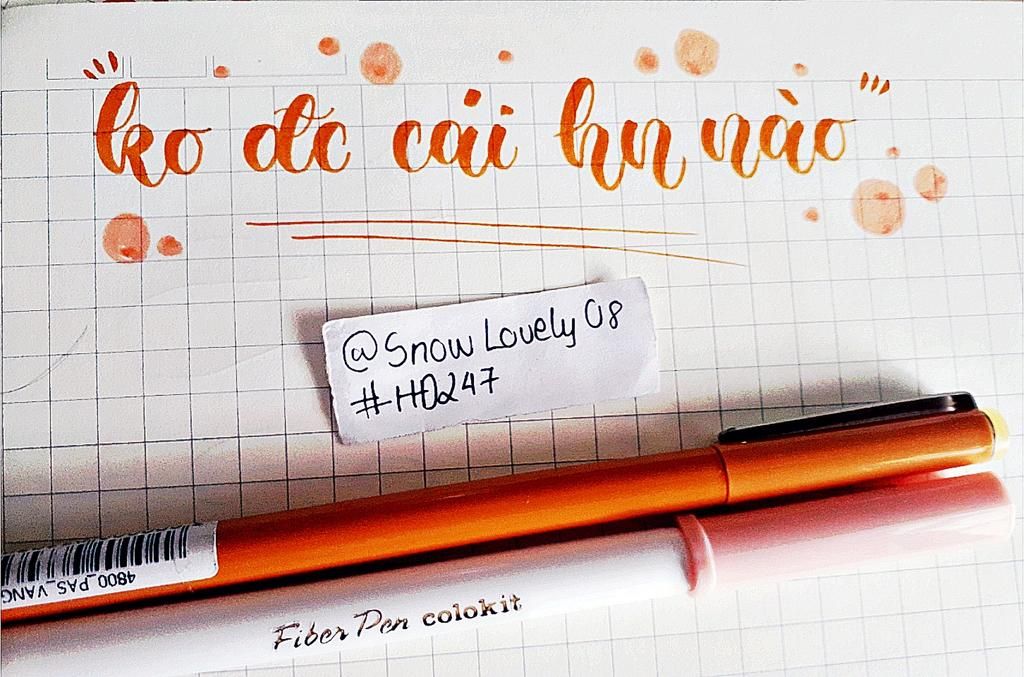 "ko đc cái hn nào"
@Snow Lovely 08
#HD247
4800_PAS_VANG
Fiber Pen colokit